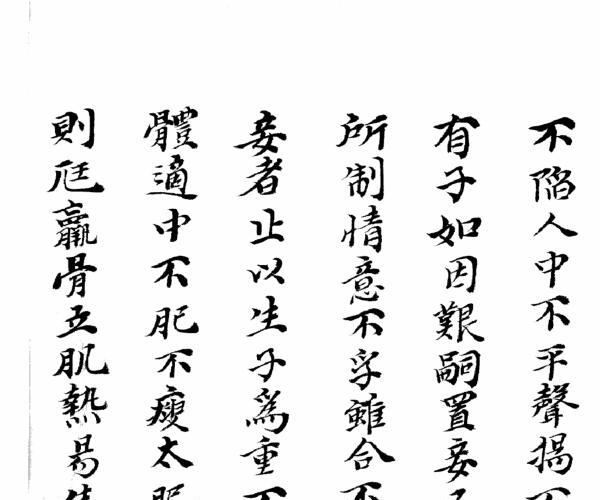 不陷人中不平聲揭
有子如因艱嗣置妾
所制情意不孚雖合
妾者止以生子為重
體適中不肥不瘦太
則尫羸骨立肌熱易